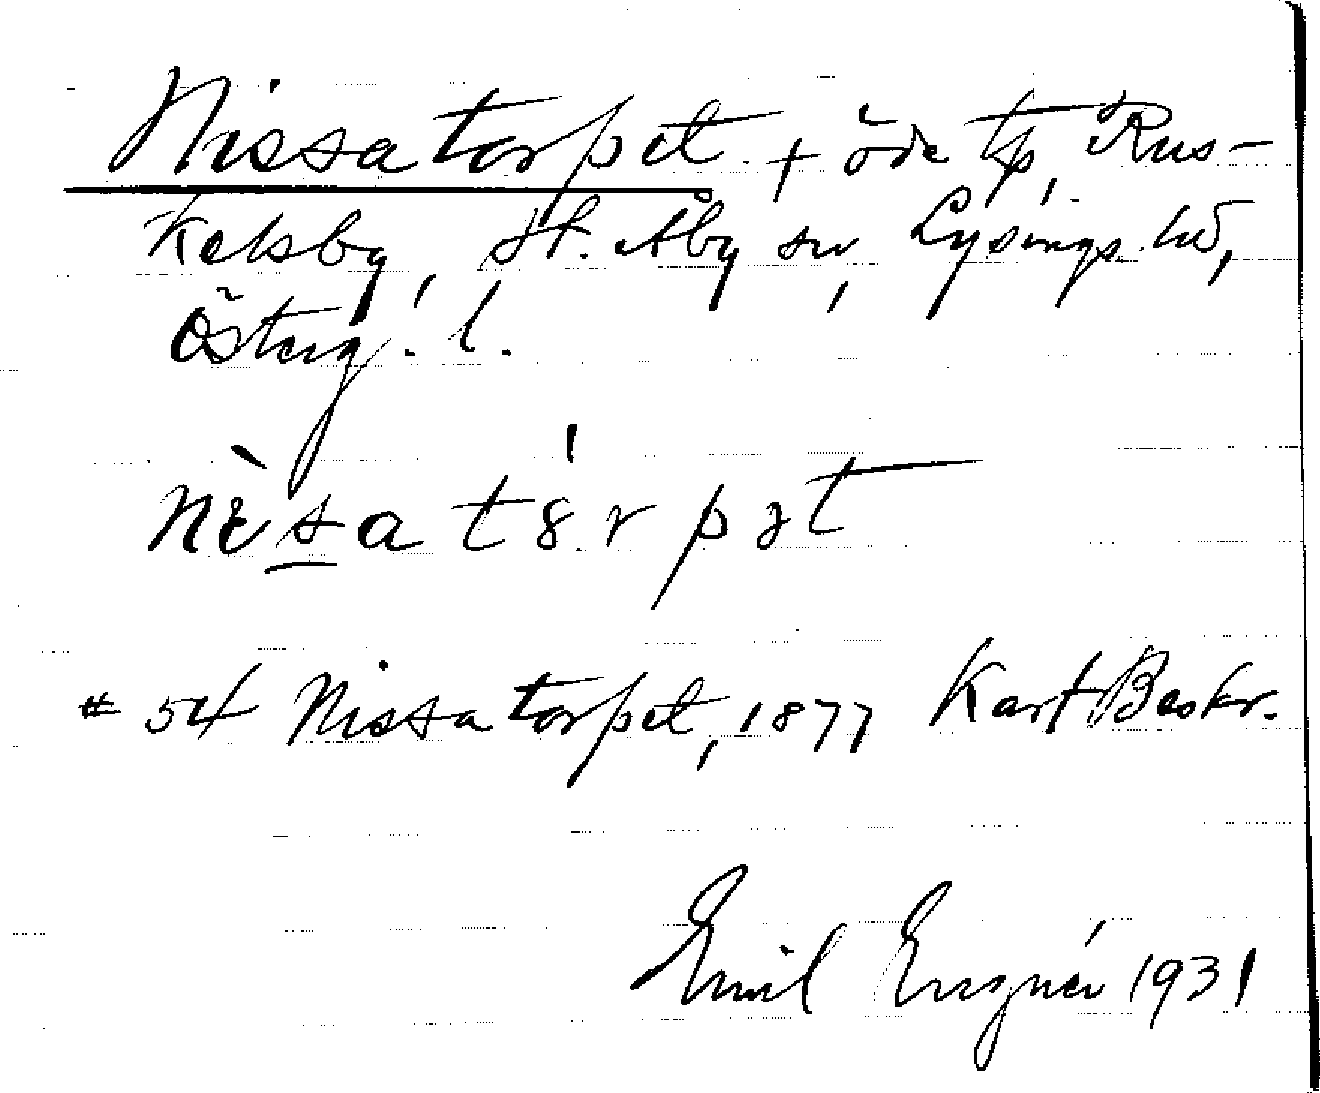 Nissatorpet + öde tp, Rus-
kelsby, St. Åby sn, Lysings hd,
Österg. l.
nìsatórpət
# 54 Nissatorpet, 1877 Kart Beskr.
Emil Engnér 1931